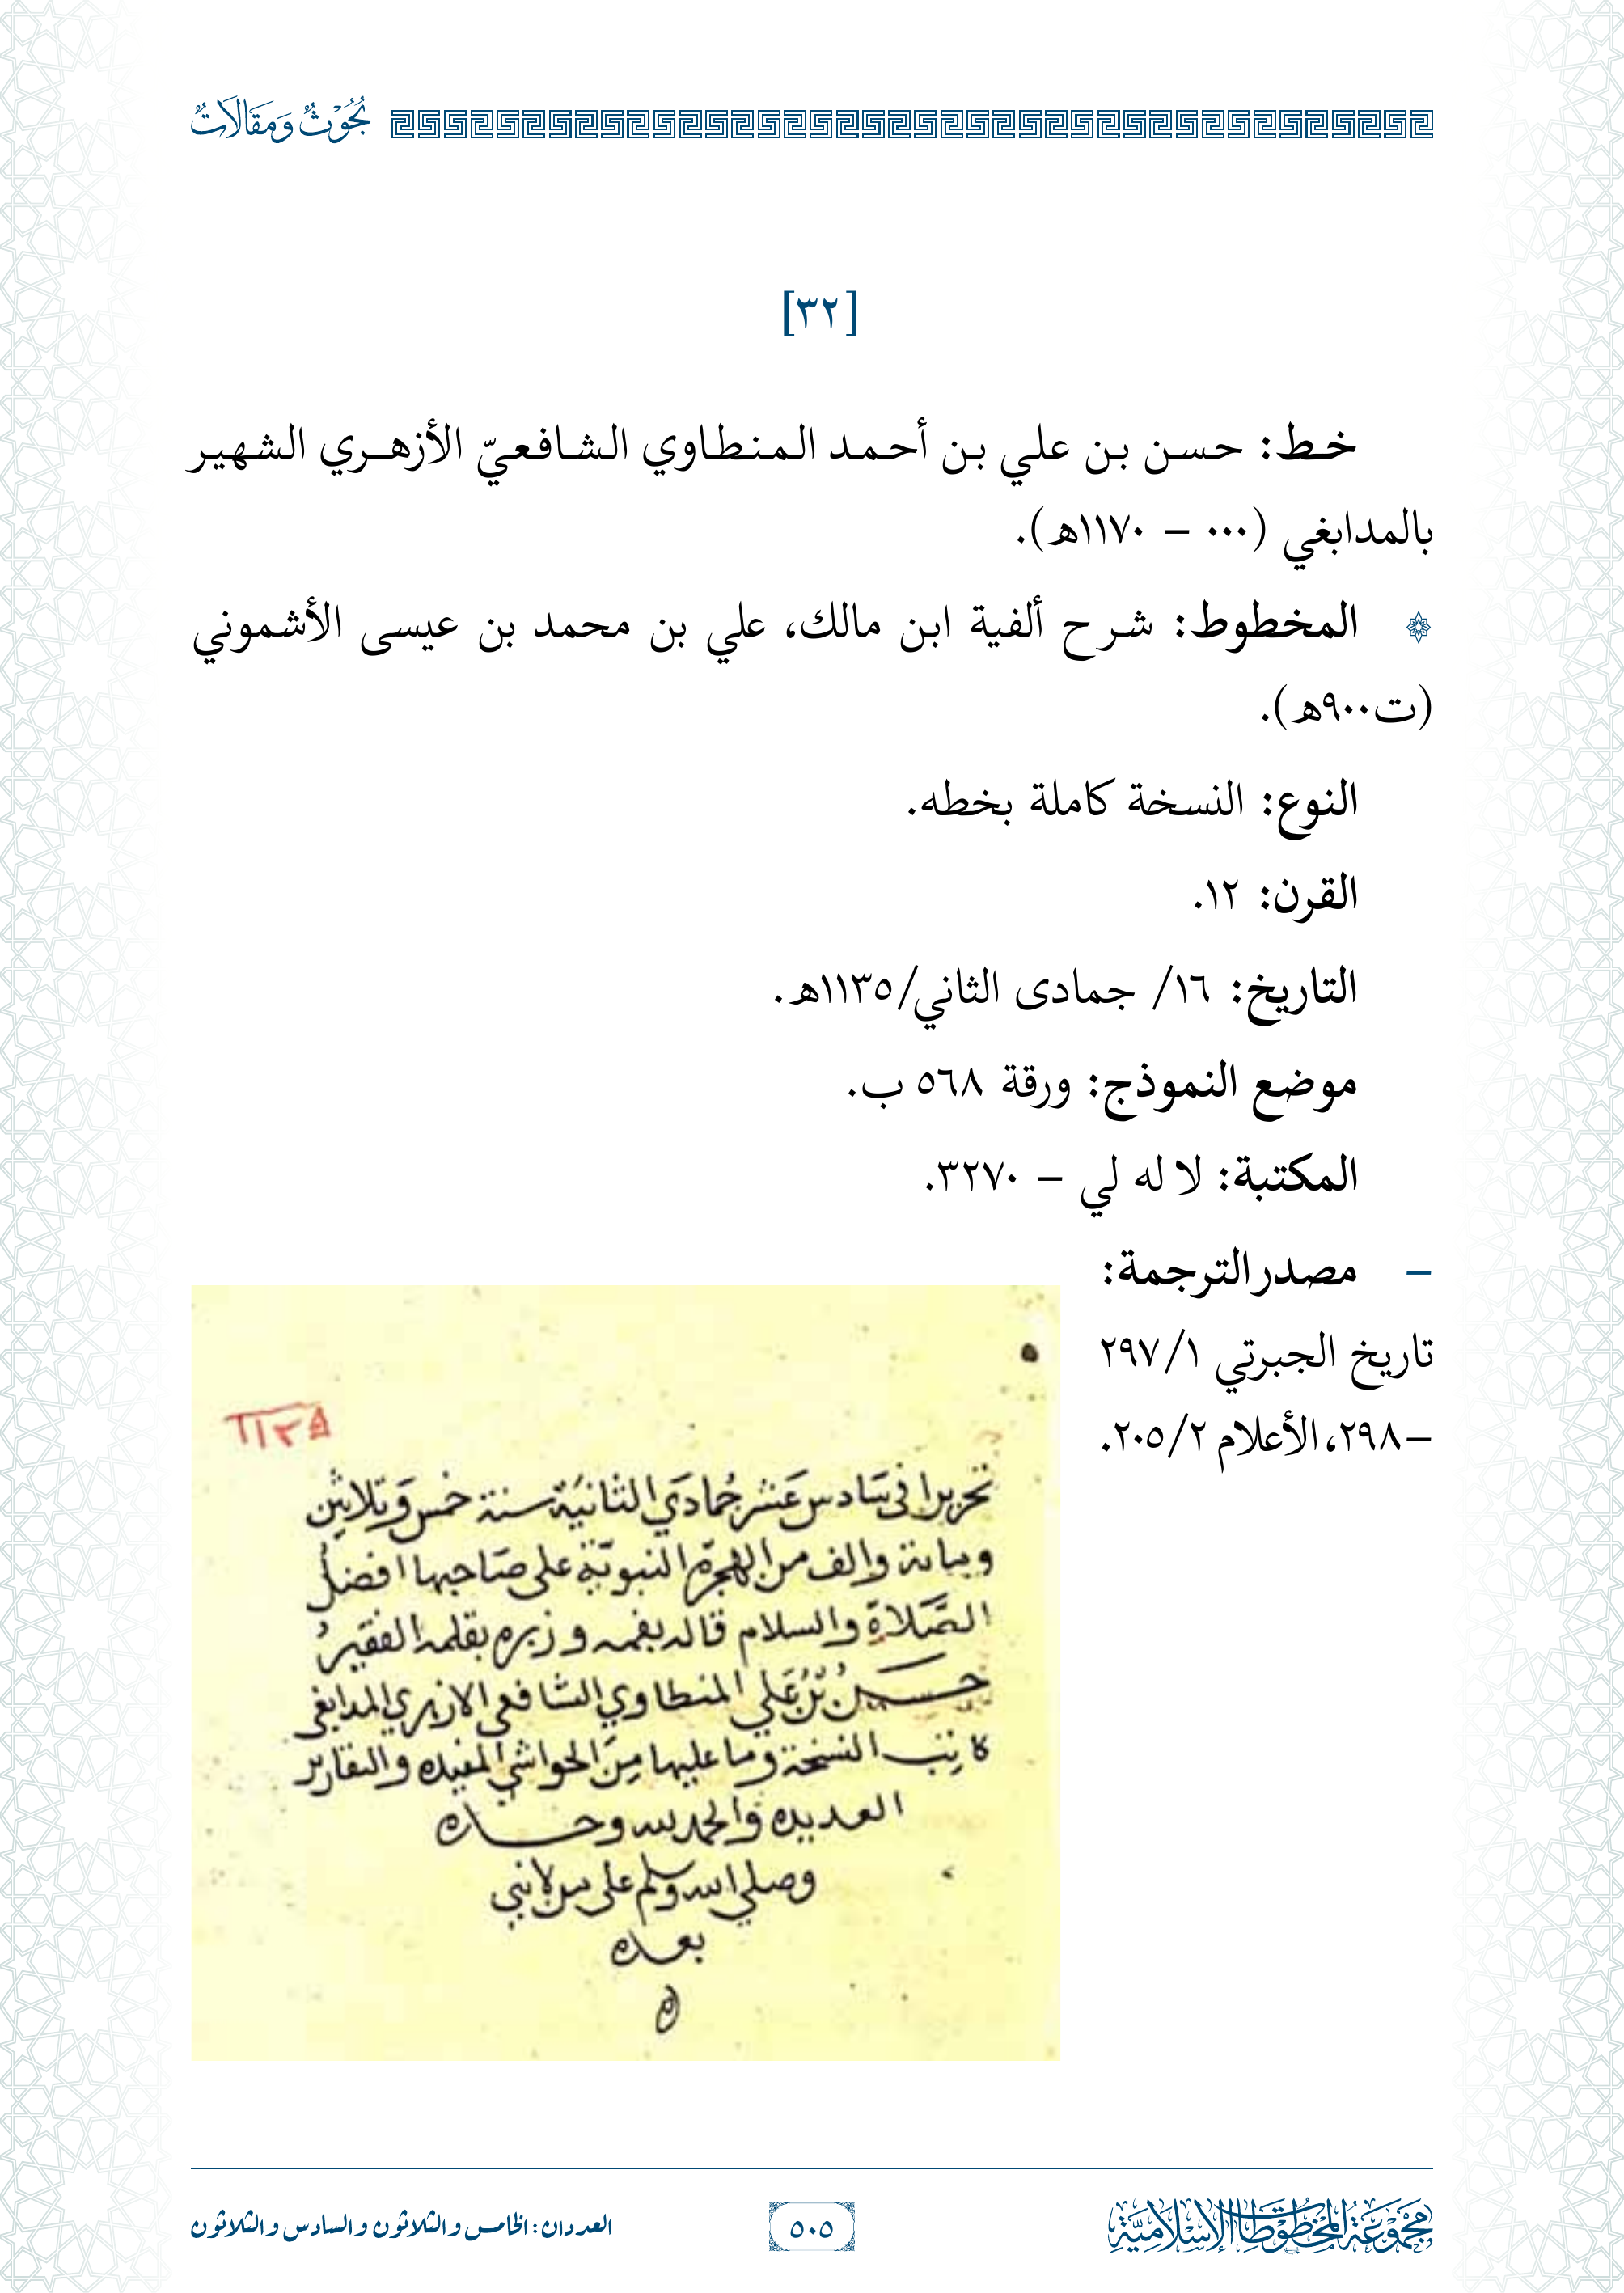 بُحُوْثٌ وَمَقَالَاتٌ
[٣٢]
خط: حسن بن علي بن أحمد المنطاوي الشافعيّ الأزهري الشهير
بالمدابغي (٠٠٠ – ١١٧٠هـ).
المخطوط: شرح ألفية ابن مالك، علي بن محمد بن عيسى الأشموني
(ت٩٠٠هـ).
النوع: النسخة كاملة بخطه.
القرن: ١٢.
التاريخ: ١٦/ جمادى الثاني/١١٣٥هـ.
موضع النموذج: ورقة ٥٦٨ ب.
المكتبة: لا له لي – ٣٢٧٠.
– مصدر الترجمة:
تاريخ الجبرتي ٢٩٧/١
–٢٩٨، الأعلام ٢٠٥/٢.
١١٣٥
تحريرا في سَادس عَشر جُمادَي الثانيَة سنة خمس وَثلاثين
وماىة والف من الهجرة النبويّة على صَاحبها افضلُ
الصَّلاة والسلام قاله بفمه وزبره بقلمه الفقيرُ
حسن بْنُ عَلي المنطاوي الشافعي الازهري المدابغى
كاتِب النسخة وَما عليها مِنَ الحواشي المفيده والتقارير
العديده وَالحمد لله وحده
وصلي الله وَسلم على من لا نبي
بعده
مجموعة المخطوطات الإسلامية
٥٠٥
العددان: الخامس والثلاثون والسادس والثلاثون